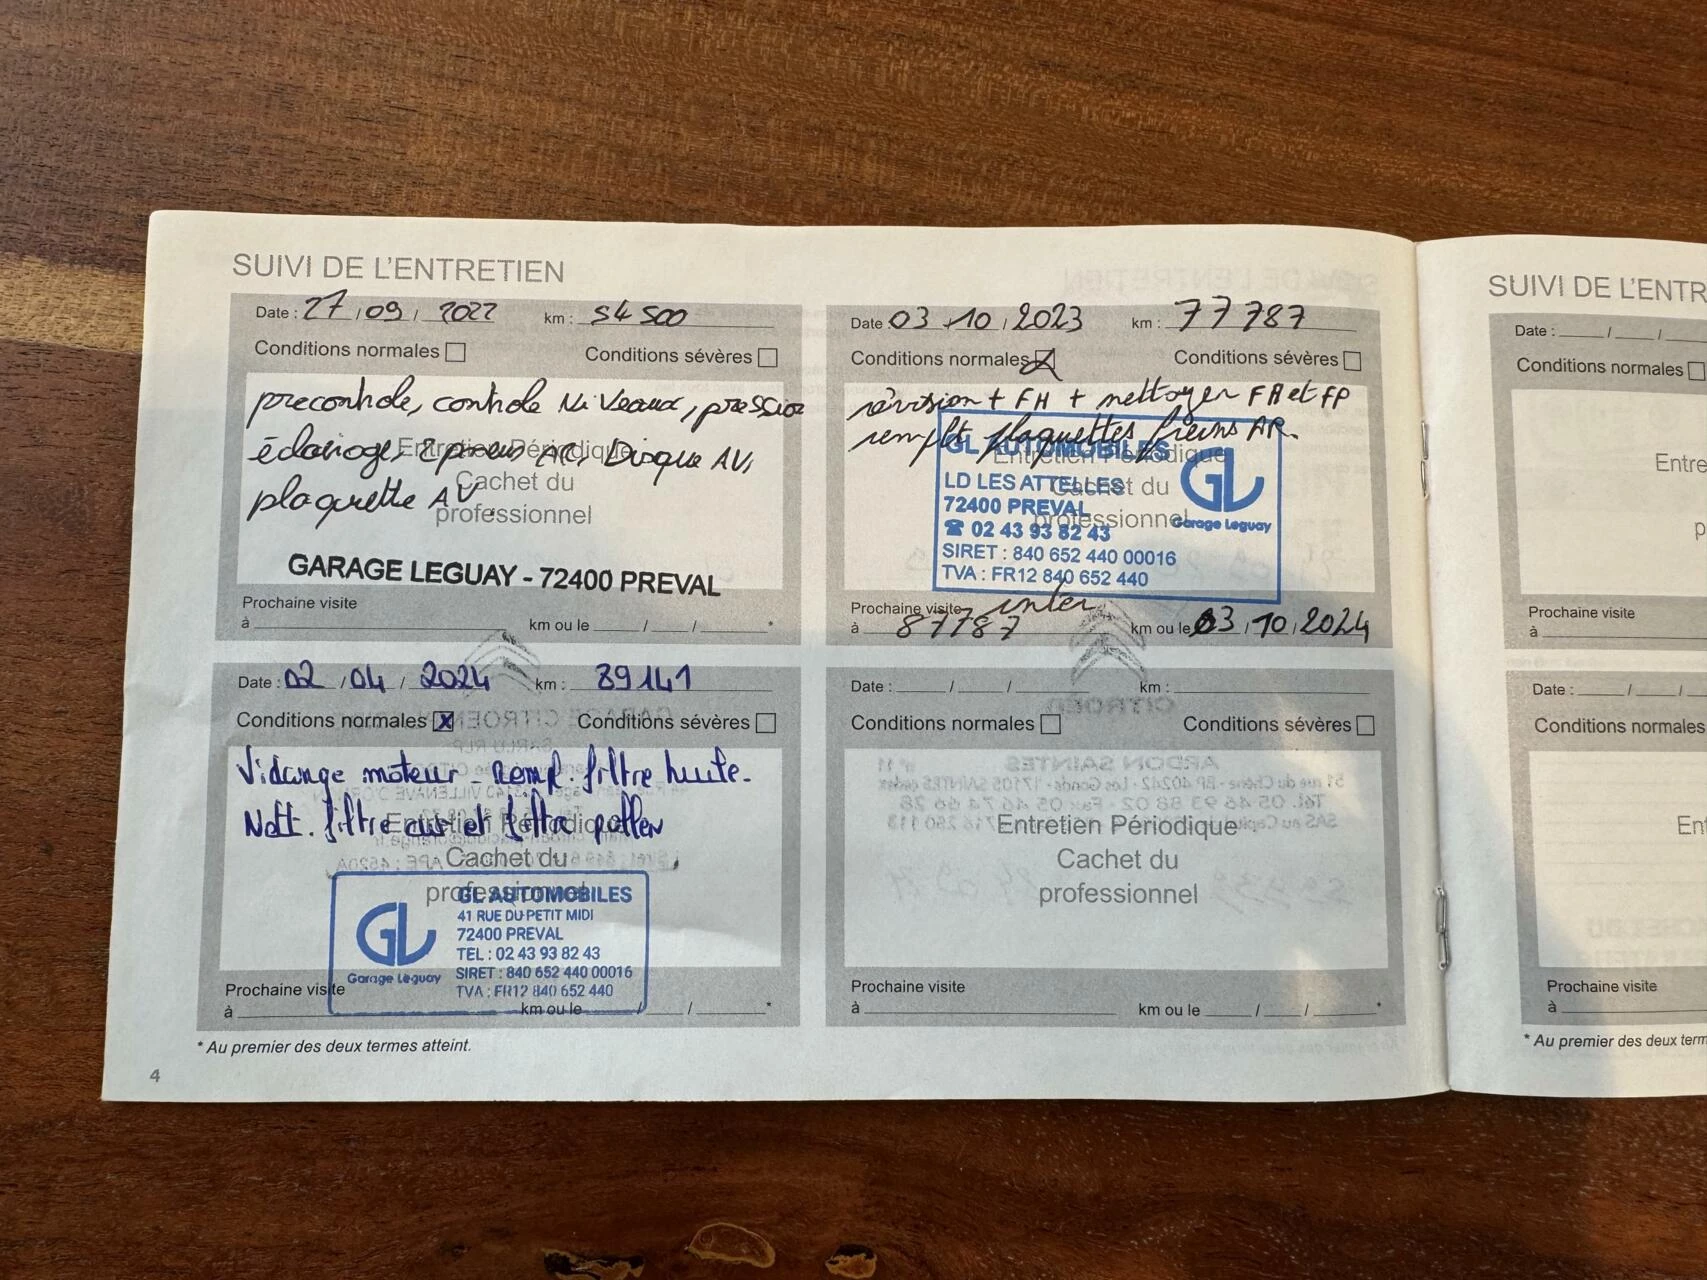 SUIVI DE L'ENTRETIEN
Date : 27 / 09 / 2022 km : 54 500
Conditions normales Conditions sévères
precontrole, controle Niveaux, pression
éclairage, 2 pneus AR, Disque AV,
plaquette AV.
Entretien Périodique
Cachet du
professionnel
GARAGE LEGUAY - 72400 PREVAL
Prochaine visite
à km ou le / / *
Date 03 / 10 / 2023 km : 77 787
Conditions normales Conditions sévères
révision + FH + nettoyer FA et FP
remplt plaquettes freins AR.
Entretien Périodique
Cachet du
professionnel
GL AUTOMOBILES
LD LES ATTELLES
72400 PREVAL
☎ 02 43 93 82 43
SIRET : 840 652 440 00016
TVA : FR12 840 652 440
GL
Garage Leguay
Prochaine visite inter
à 87787 km ou le 03 / 10 / 2024
Date : 02 / 04 / 2024 km : 89141
Conditions normales X Conditions sévères
Vidange moteur - Remp. filtre huile.
Nett. filtre air et filtre pollen
Entretien Périodique
Cachet du
professionnel
GL
Garage Leguay
GL AUTOMOBILES
41 RUE DU PETIT MIDI
72400 PREVAL
TEL : 02 43 93 82 43
SIRET : 840 652 440 00016
TVA : FR12 840 652 440
Prochaine visite
à km ou le / / *
Date : / / km :
Conditions normales Conditions sévères
Entretien Périodique
Cachet du
professionnel
Prochaine visite
à km ou le / / *
* Au premier des deux termes atteint.
4
SUIVI DE L'ENTR
Date : / /
Conditions normales
Entre
p
Prochaine visite
à
Date : / /
Conditions normales
Ent
Prochaine visite
à
* Au premier des deux term